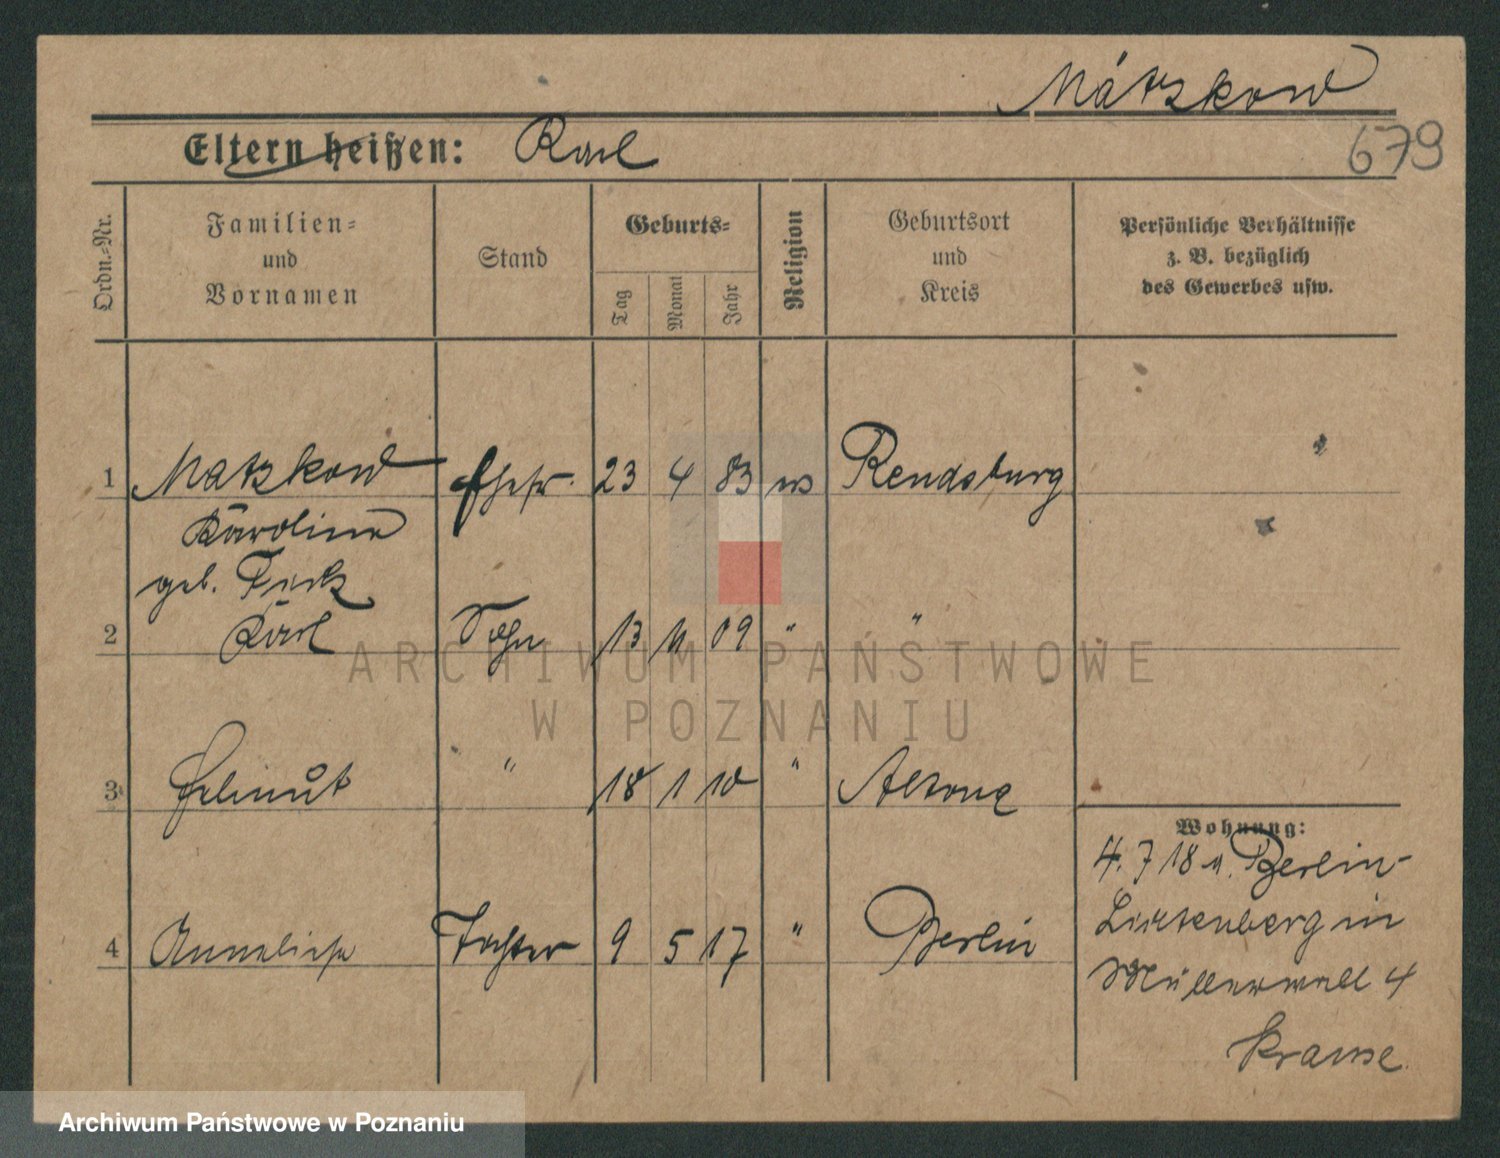 Mátzkow
679
Eltern heißen: Karl
Ordn.-Nr.
Familien-
und
Vornamen
Stand
Geburts-
Tag
Monat
Jahr
Religion
Geburtsort
und
Kreis
Persönliche Verhältnisse
z. B. bezüglich
des Gewerbes usw.
1 Matzkow Ehefr. 23 4 83 Rendsburg
Karoline
geb.
2 Karl Sohn 13 11 09 " "
3 Helmut " 18 1 10 " Altona
Wohnung:
4. 7 18 n. Berlin-
Lichtenberg in
4 Anneliese Tochter 9 5 17 " Berlin
Müllerwall 4
Krause
ARCHIWUM PAŃSTWOWE
W POZNANIU
Archiwum Państwowe w Poznaniu